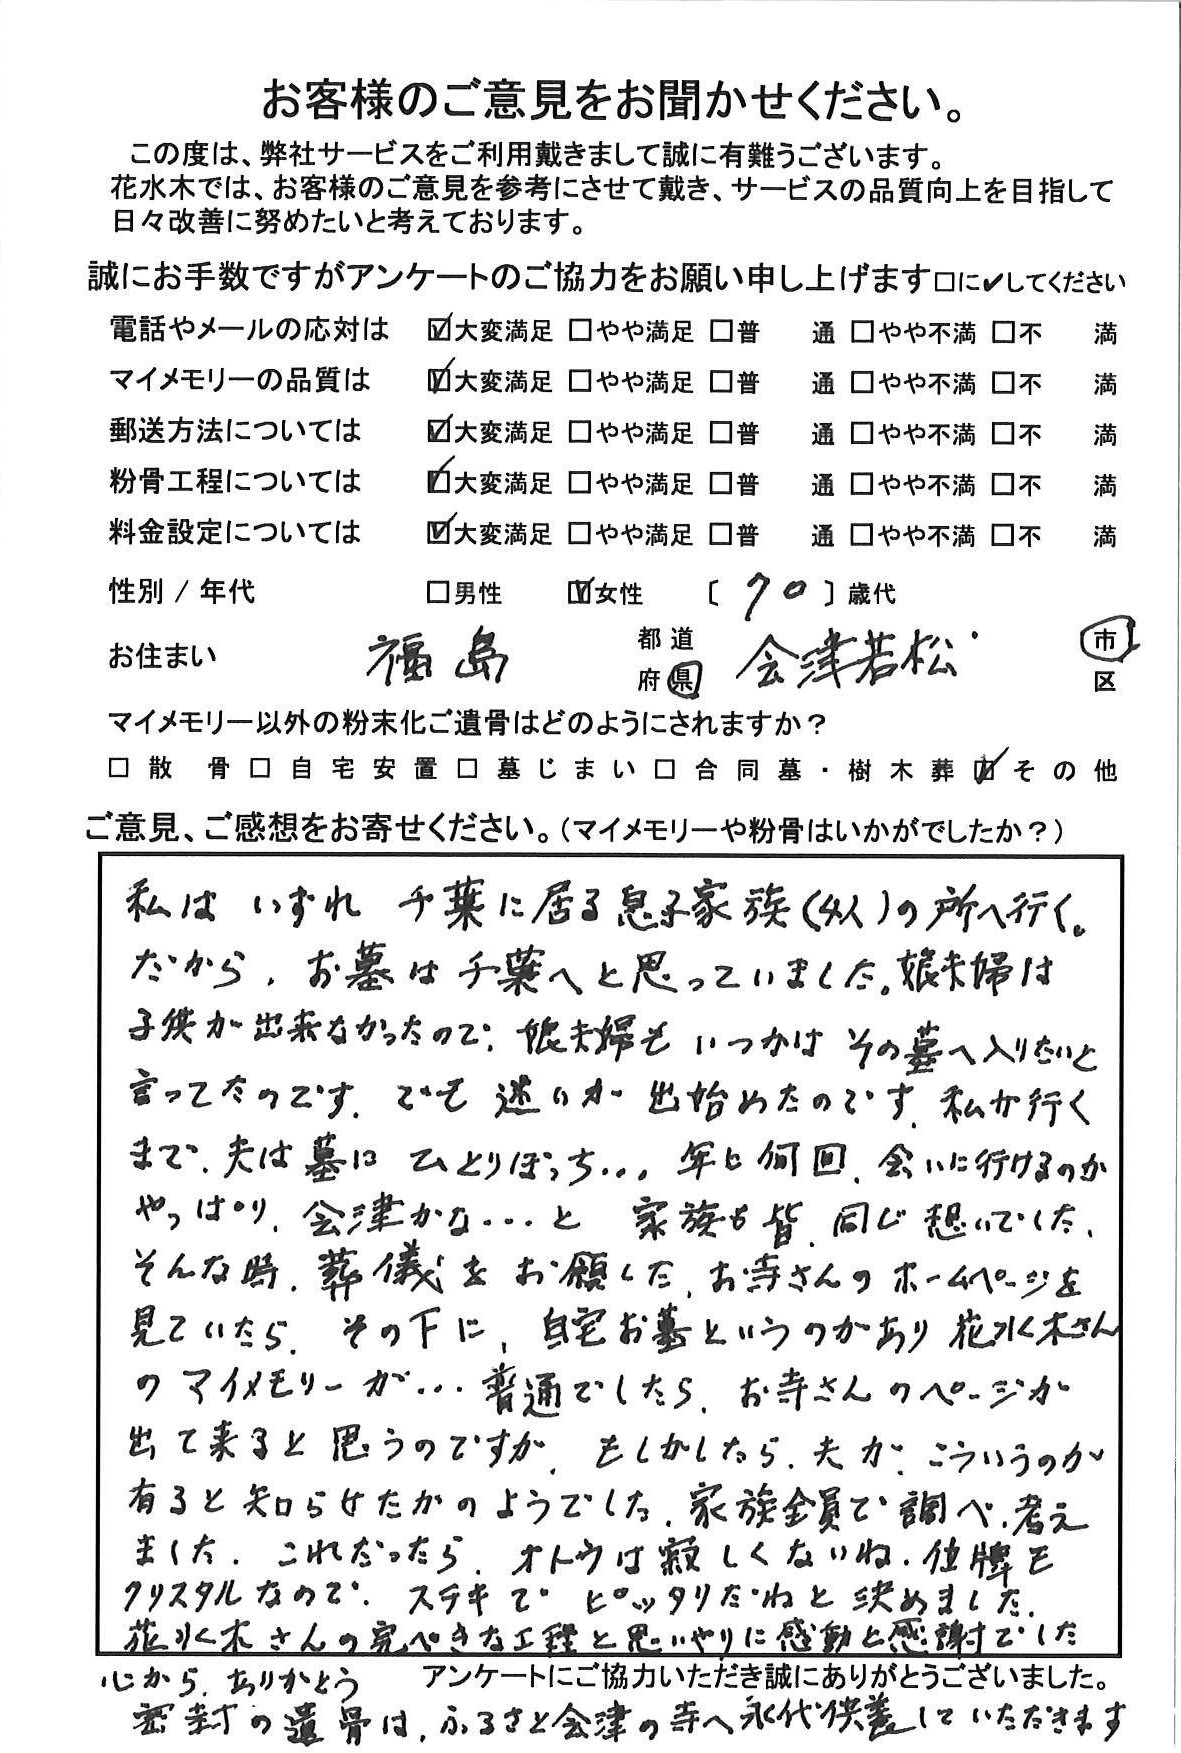 お客様のご意見をお聞かせください。
この度は、弊社サービスをご利用戴きまして誠に有難うございます。
花水木では、お客様のご意見を参考にさせて戴き、サービスの品質向上を目指して
日々改善に努めたいと考えております。
誠にお手数ですがアンケートのご協力をお願い申し上げます□に✔してください
電話やメールの応対は ☑大変満足 □やや満足 □普 通 □やや不満 □不 満
マイメモリーの品質は ☑大変満足 □やや満足 □普 通 □やや不満 □不 満
郵送方法については ☑大変満足 □やや満足 □普 通 □やや不満 □不 満
粉骨工程については ☑大変満足 □やや満足 □普 通 □やや不満 □不 満
料金設定については ☑大変満足 □やや満足 □普 通 □やや不満 □不 満
性別 / 年代 □男性 ☑女性 〔 70 〕歳代
お住まい 福島 都道府県 会津若松 市区
マイメモリー以外の粉末化ご遺骨はどのようにされますか?
□ 散 骨 □ 自宅安置 □ 墓じまい □ 合同墓・樹木葬 ☑ その他
ご意見、ご感想をお寄せください。(マイメモリーや粉骨はいかがでしたか?)
私は いずれ 千葉に居る息子家族(4人)の所へ行く。
だから、お墓は千葉へと思っていました。娘夫婦は
子供が出来なかったので、娘夫婦も いつかは その墓へ入りたいと
言ってたのです。でも 迷いが 出始めたのです。私が行く
まで、夫は墓に ひとりぼっち... 年に何回、会いに行けるのか
やっぱり、会津かな...と 家族も皆、同じ想いでした。
そんな時、葬儀をお願した、お寺さんのホームページを
見ていたら、その下に、自宅お墓というのがあり 花水木さん
のマイメモリーが... 普通でしたら、お寺さんのページが
出て来ると思うのですが、もしかしたら、夫が、こういうのが
有ると知らせたかのようでした。家族全員で調べ、考え
ました。これだったら、オトウは寂しくないね。位牌も
クリスタルなので、ステキで ピッタリだねと決めました。
花水木さんの完ぺきな工程と思いやりに感動と感謝でした
心から、ありがとう
アンケートにご協力いただき誠にありがとうございました。
密封の遺骨は、ふるさと会津の寺へ永代供養していただきます